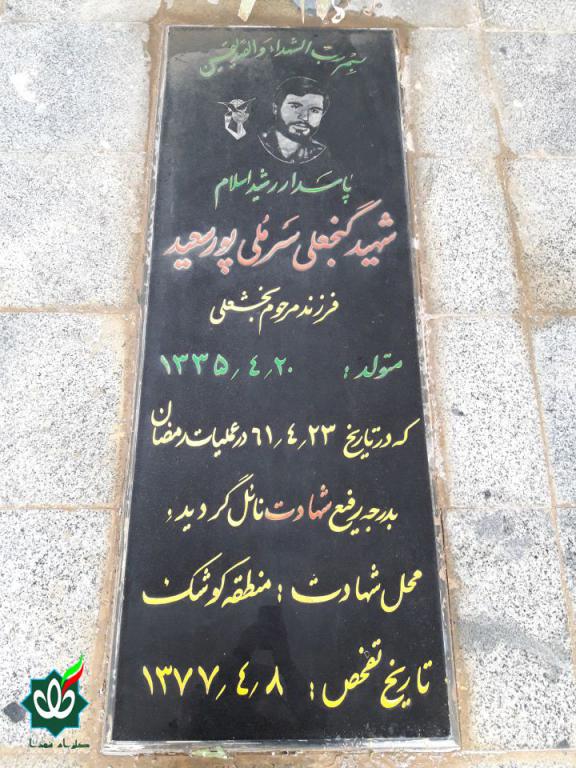 بسم رب الشهداء والصدیقین
پاسدار رشید اسلام
شهید گنجعلی سرملی پور سعید
فرزند مرحوم بخشعلی
متولد : ۱۳۳۵٫۴٫۲۰
که در تاریخ ۶۱٫۴٫۲۳ در عملیات رمضان
بدرجه رفیع شهادت نائل گردید
محل شهادت : منطقه کوشک
تاریخ تفحص : ۱۳۷۷٫۴٫۸